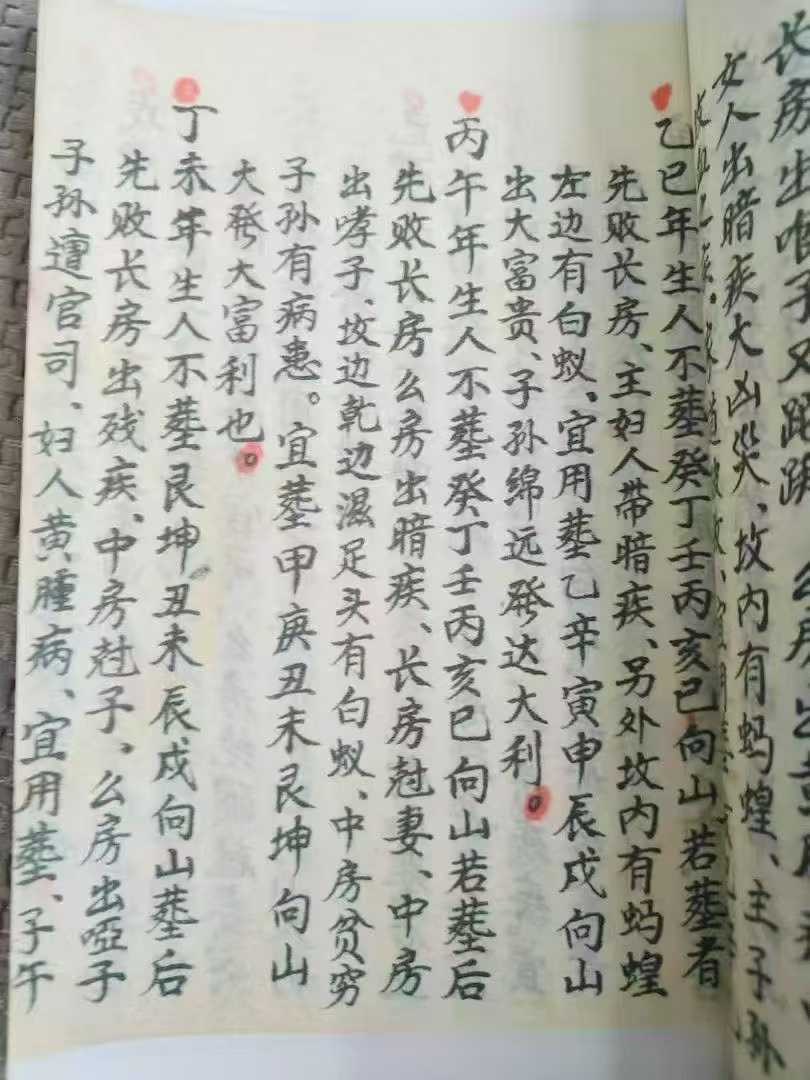 长房出哑子又跛
女人出暗疾大凶災、坟内有蚂蝗、主子孙
乙巳年生人不塟癸丁壬丙亥巳向山若塟者
先败长房、主妇人带暗疾、另外坟内有蚂蝗
左边有白蚁、宜用塟乙辛寅申辰戍向山
出大富贵、子孙绵远発达大利。
丙午年生人不塟癸丁壬丙亥巳向山若塟后
先败长房么房出暗疾、长房尅妻、中房
出哮子、坟边乾边濕足头有白蚁、中房贫穷
子孙有病患。宜塟甲庚丑未艮坤向山
大発大富利也。
丁未年生人不塟艮坤丑未辰戍向山塟后
先败长房出残疾、中房尅子。么房出啞子
子孙遭官司、妇人黄腫病、宜用塟、子午